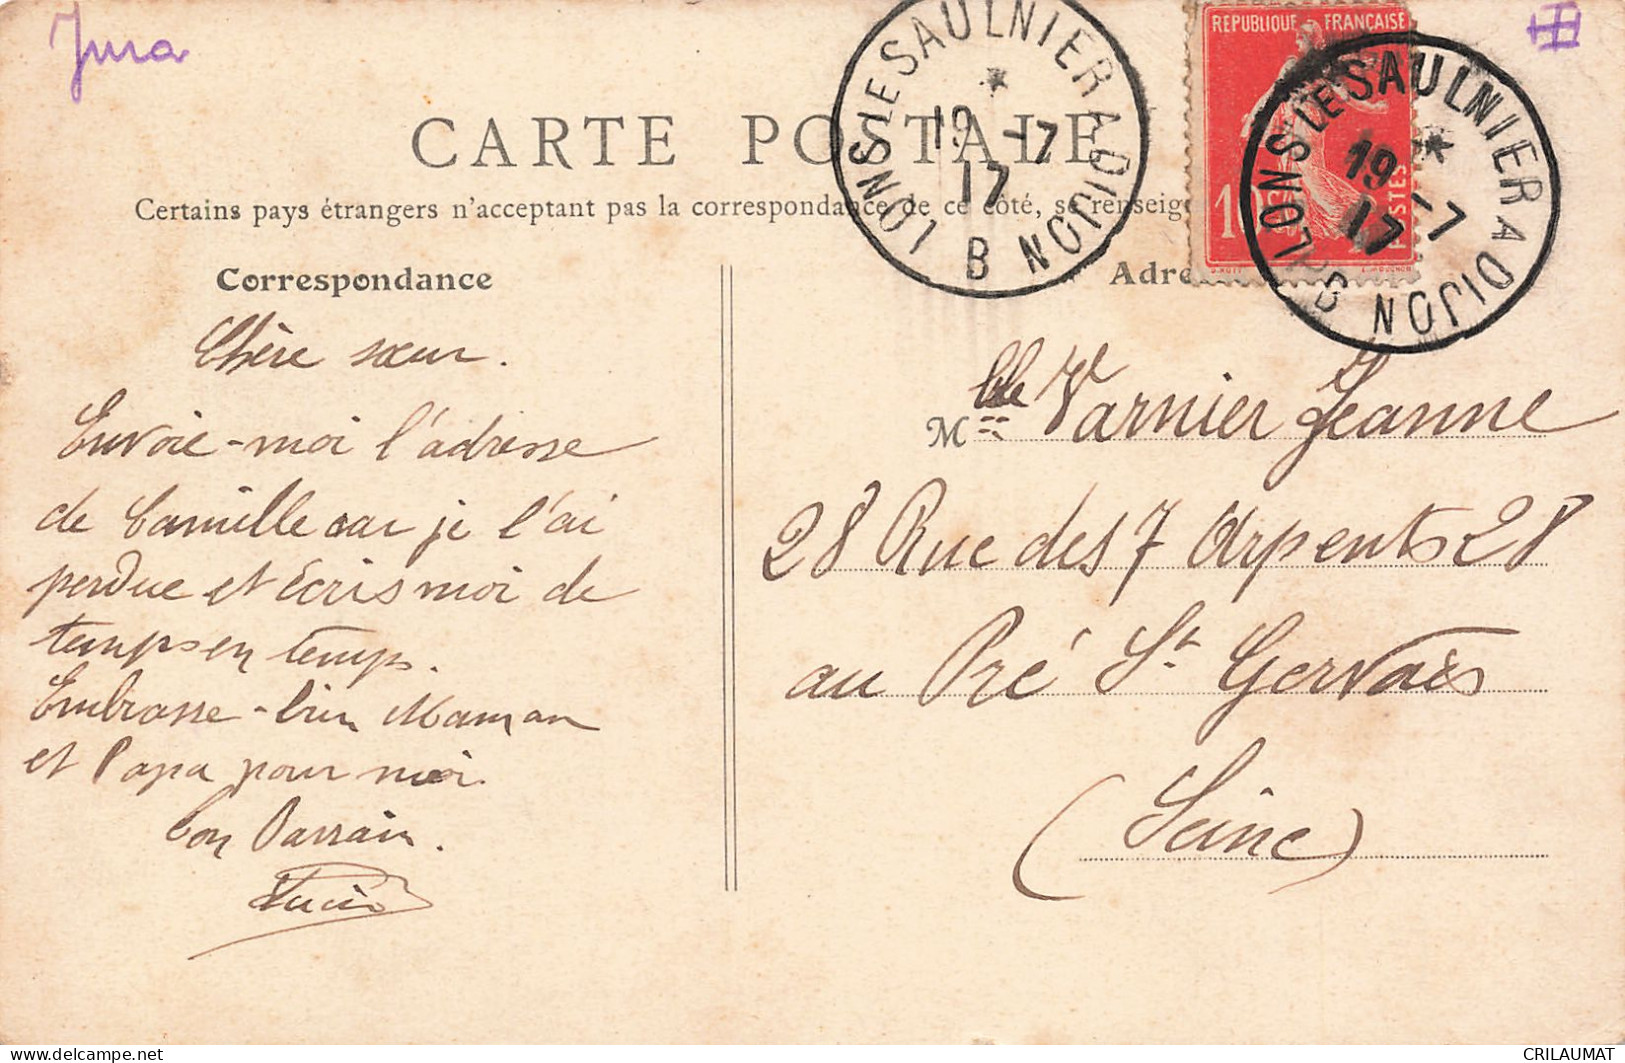 Jura
CARTE POSTALE
Certains pays étrangers n'acceptant pas la correspondance de ce côté, se renseig
LONS LE SAULNIER A DIJON B
19 -7
17
REPUBLIQUE FRANÇAISE
10
POSTES
LONS LE SAULNIER A DIJON B
19 -7
17
Correspondance
Chère sœur.
Envoie-moi l'adresse
de Camille car je l'ai
perdue et écris moi de
temps en temps.
Embrasse-bien Maman
et Papa pour moi.
Ton Parrain.
Lucien
Adre
Mlle Varnier Jeanne
28 Rue des 7 Arpents 28
au Pré St Gervais
(Seine)
CRILAUMAT